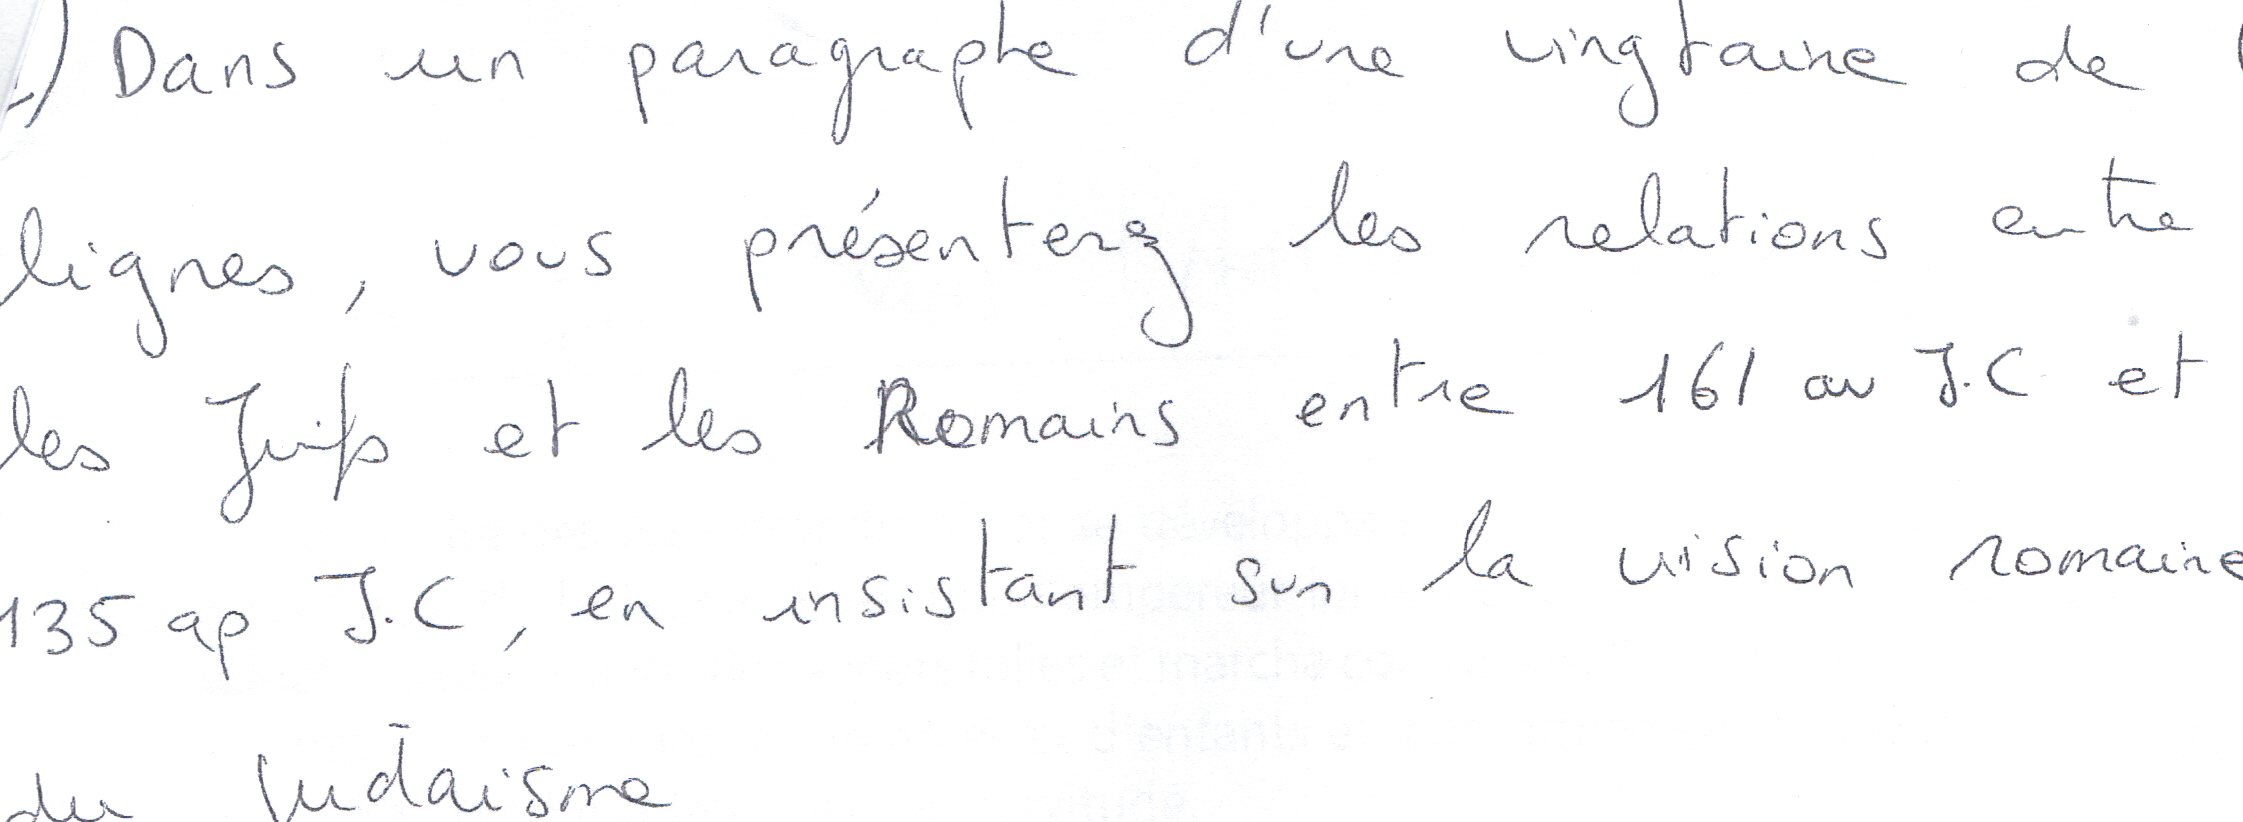 ) Dans un paragraphe d'une vingtaine de
lignes, vous présenterez les relations entre
les Juifs et les Romains entre 161 av J.C et
135 ap J.C, en insistant sur la vision romaine
du Judaisme